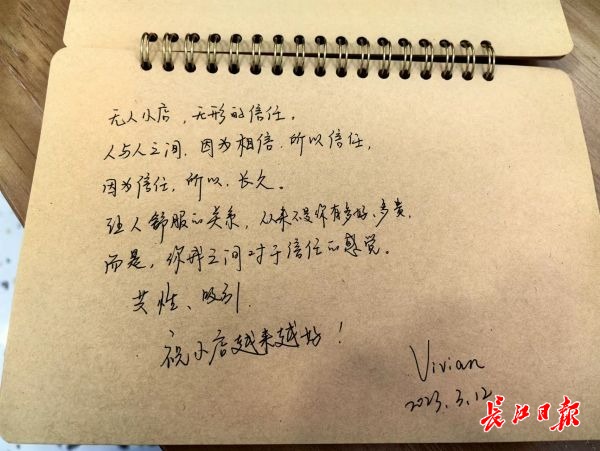 无人小店，无形的信任。
人与人之间，因为相信，所以信任，
因为信任，所以，长久。
让人舒服的关系，从来不是你有多好、多贵，
而是，你我之间对于信任的感觉。
共性、吸引
祝小店越来越好！
Vivian
2023.3.12
长江日报